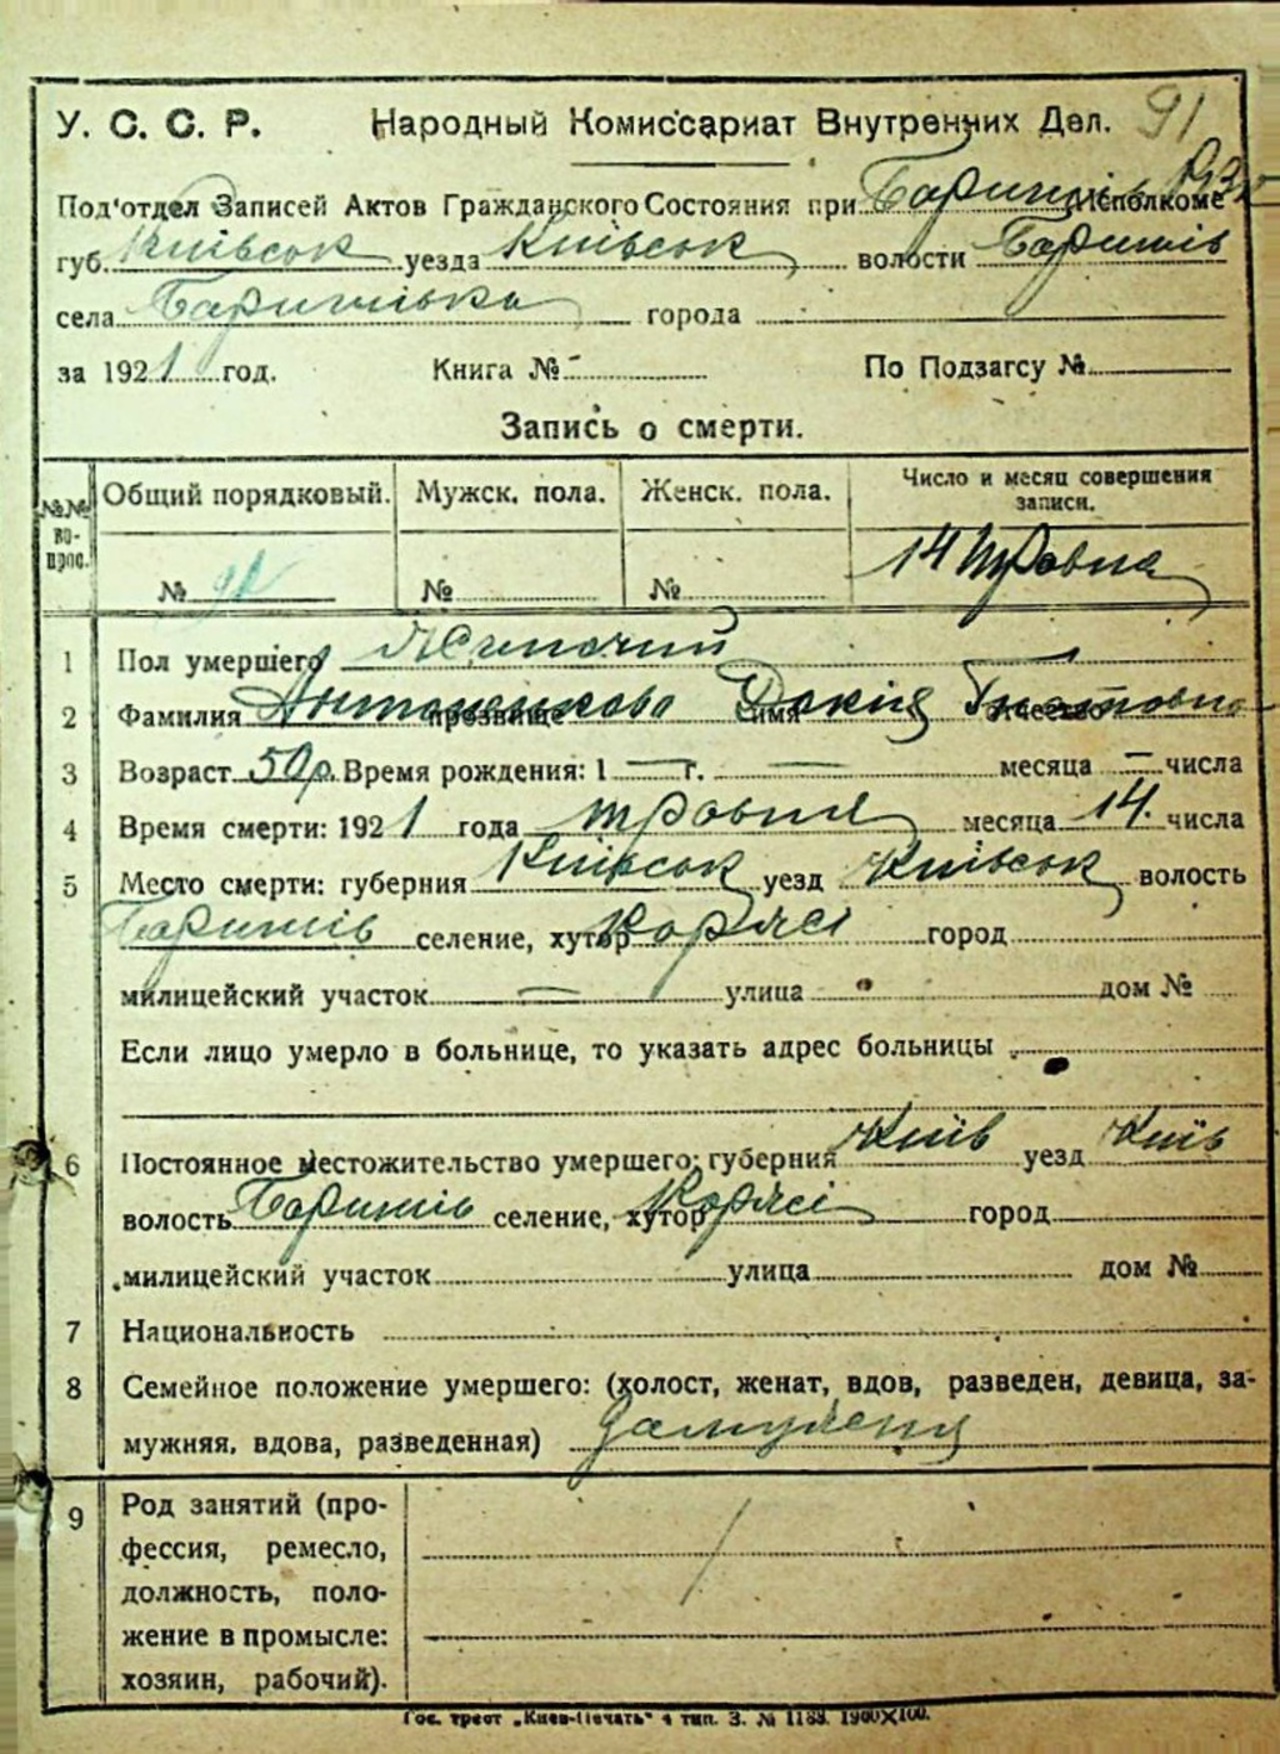 У. С. С. Р. Народный Комиссариат Внутренних Дел. 91
Под'отдел Записей Актов Гражданского Состояния при Баришів Исполкоме
губ. Київськ уезда Київськ волости Баришів
села Баришівка города
за 1921 год. Книга № - По Подзагсу №
Запись о смерти.
№№ во-прос. Общий порядковый. Мужск. пола. Женск. пола. Число и месяц совершения записи.
№ 91 № № 14 травня
1 Пол умершего Жиночий
2 Фамилия прозвище Антоненкова имя Докія отчество Гнатовна
3 Возраст 50 р. Время рождения: 1 — г. — месяца — числа
4 Время смерти: 1921 года травня месяца 14. числа
5 Место смерти: губерния Київськ уезд Київськ волость
Баришів селение, хутор Коржі город
милицейский участок — улица дом №
Если лицо умерло в больнице, то указать адрес больницы
6 Постоянное местожительство умершего: губерния Київ уезд Київ
волость Баришів селение, хутор Коржі город
милицейский участок улица дом №
7 Национальность
8 Семейное положение умершего: (холост, женат, вдов, разведен, девица, за-
мужняя, вдова, разведенная) Замужня
9 Род занятий (про-
фессия, ремесло,
должность, поло-
жение в промысле:
хозяин, рабочий).
Гос. трест „Киев-Печать" 4 тип. З. № 1133. 1900X100.